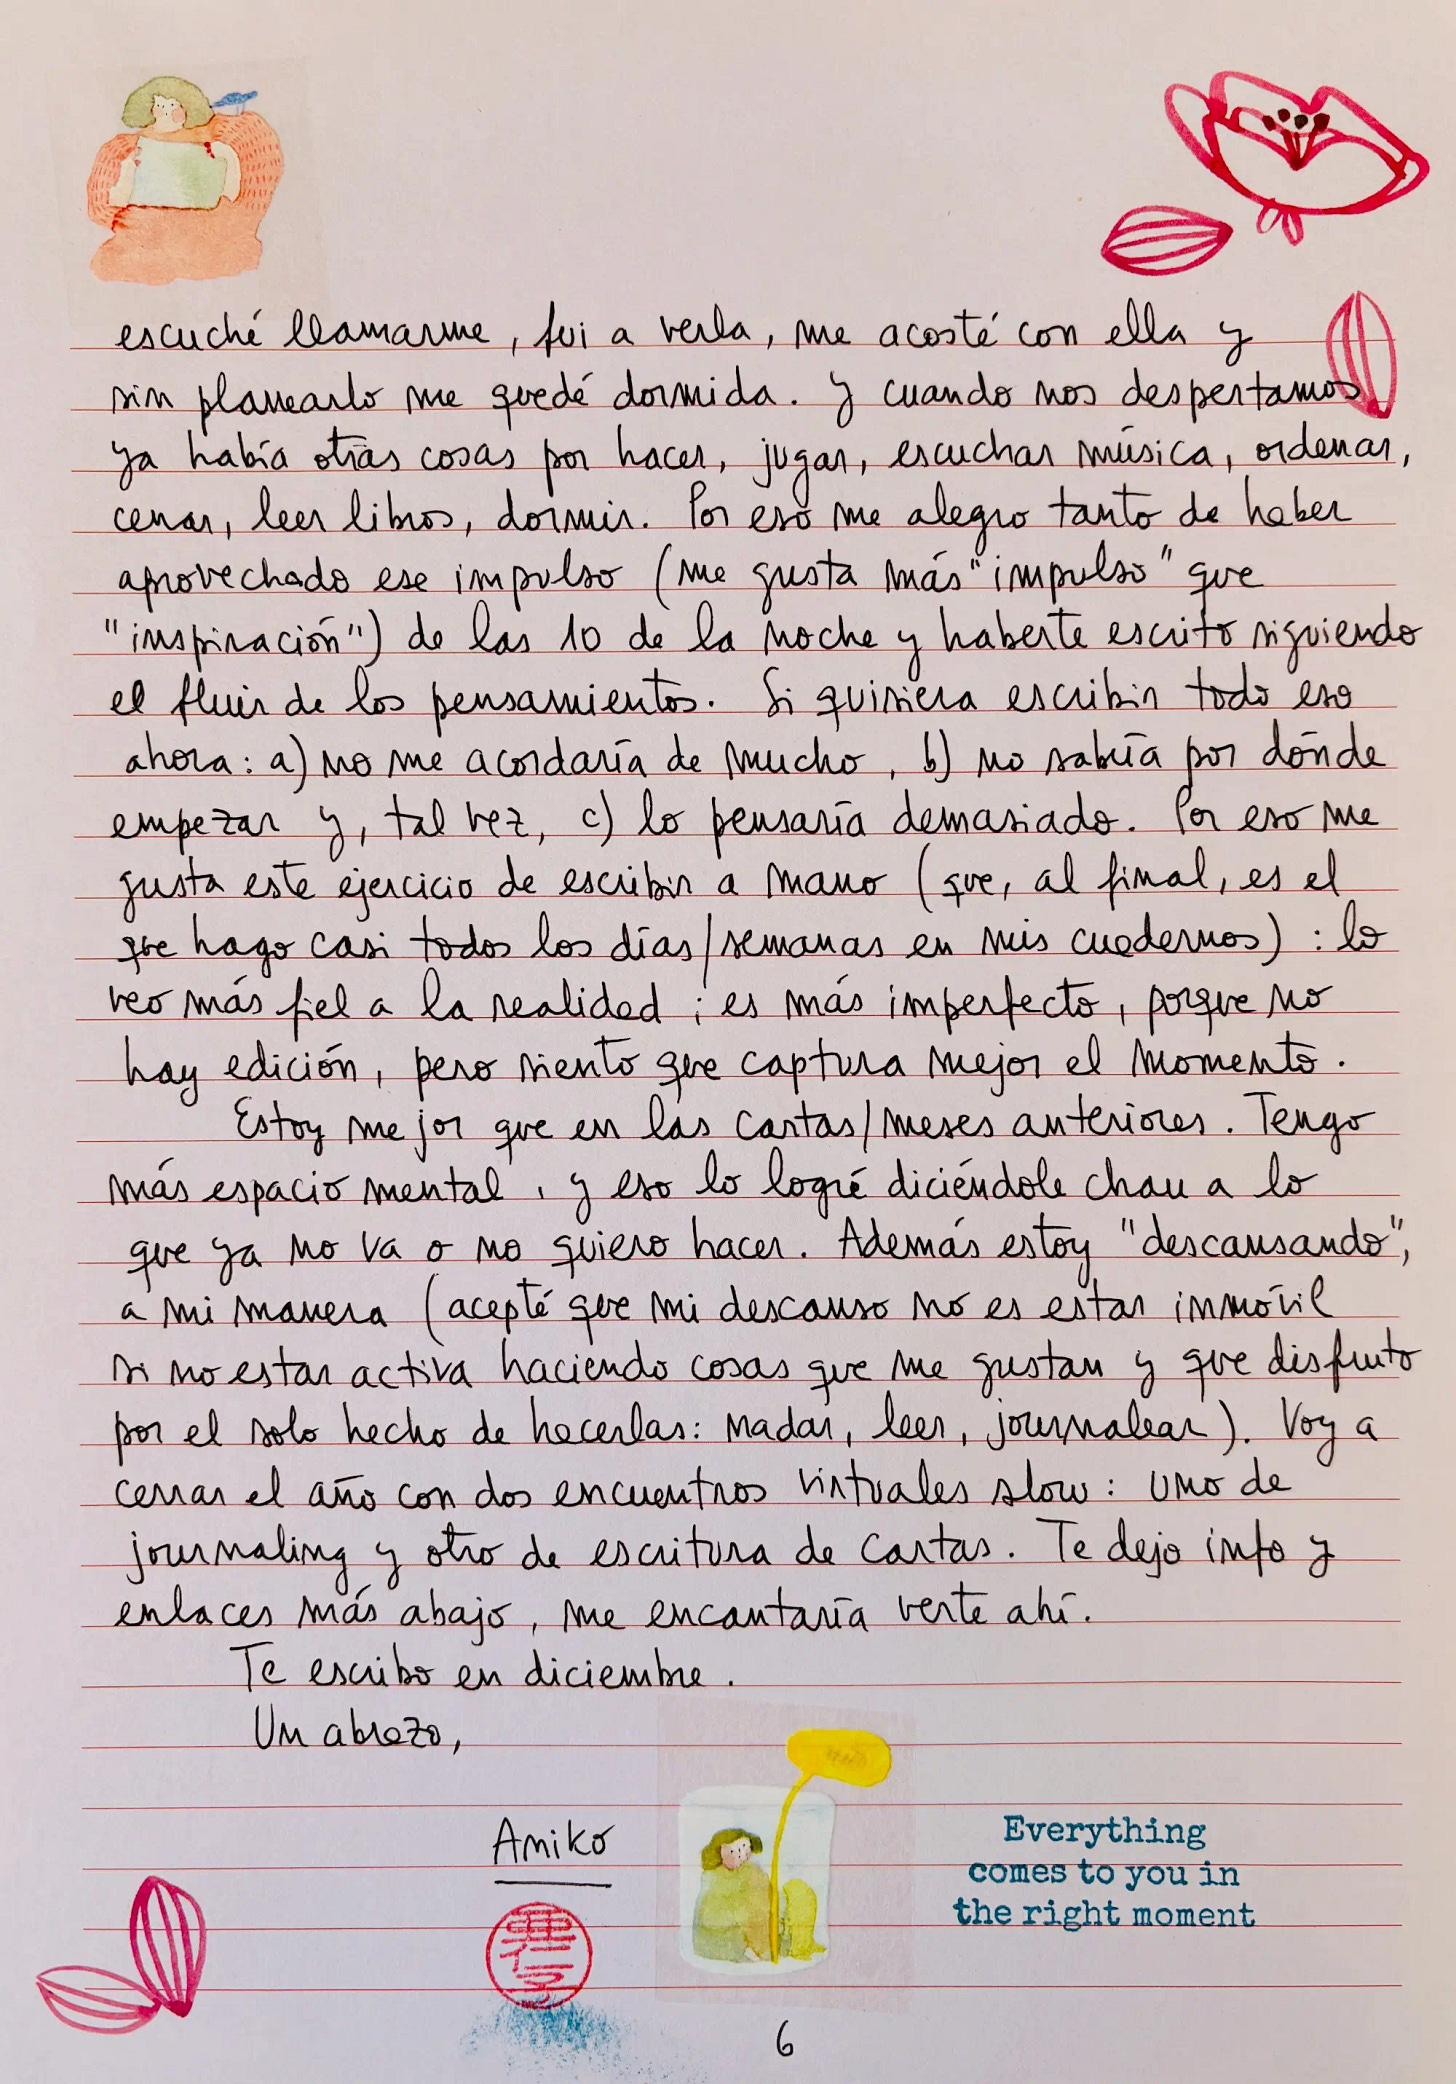 escuché llamarme, fui a verla, me acosté con ella y
sin planearlo me quedé dormida. y cuando nos despertamos
ya había otras cosas por hacer, jugar, escuchar música, ordenar,
cenar, leer libros, dormir. Por eso me alegro tanto de haber
aprovechado ese impulso (me gusta más "impulso" que
"inspiración") de las 10 de la noche y haberte escrito siguiendo
el fluir de los pensamientos. Si quisiera escribir todo eso
ahora: a) no me acordaría de mucho, b) no sabría por dónde
empezar y, tal vez, c) lo pensaría demasiado. Por eso me
gusta este ejercicio de escribir a mano (que, al final, es el
que hago casi todos los días/semanas en mis cuadernos): lo
veo más fiel a la realidad; es más imperfecto, porque no
hay edición, pero siento que captura mejor el momento.
Estoy mejor que en las cartas/meses anteriores. Tengo
más espacio mental, y eso lo logré diciéndole chau a lo
que ya no va o no quiero hacer. Además estoy "descansando",
a mi manera (acepté que mi descanso no es estar inmóvil
si no estar activa haciendo cosas que me gustan y que disfruto
por el solo hecho de hacerlas: nadar, leer, journalear). Voy a
cerrar el año con dos encuentros virtuales slow: uno de
journaling y otro de escritura de cartas. Te dejo info y
enlaces más abajo, me encantaría verte ahí.
Te escribo en diciembre.
Un abrazo,
Aniko
亜仁子
Everything
comes to you in
the right moment
6